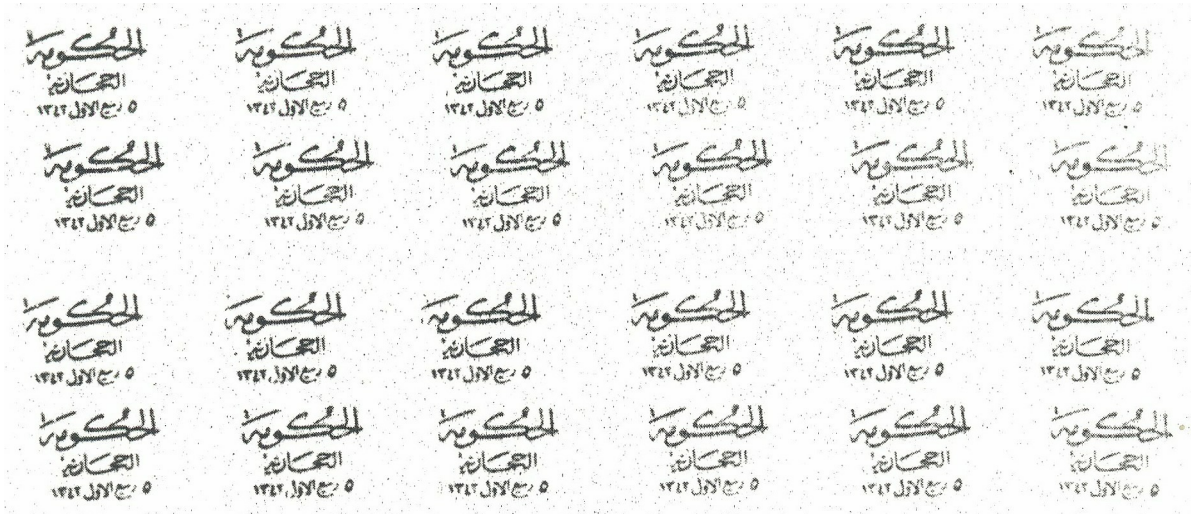 الحكومة
الحجازية
٥ ربيع الاول ١٣٤٣
الحكومة
الحجازية
٥ ربيع الاول ١٣٤٣
الحكومة
الحجازية
٥ ربيع الاول ١٣٤٣
الحكومة
الحجازية
٥ ربيع الاول ١٣٤٣
الحكومة
الحجازية
٥ ربيع الاول ١٣٤٣
الحكومة
الحجازية
٥ ربيع الاول ١٣٤٣
الحكومة
الحجازية
٥ ربيع الاول ١٣٤٣
الحكومة
الحجازية
٥ ربيع الاول ١٣٤٣
الحكومة
الحجازية
٥ ربيع الاول ١٣٤٣
الحكومة
الحجازية
٥ ربيع الاول ١٣٤٣
الحكومة
الحجازية
٥ ربيع الاول ١٣٤٣
الحكومة
الحجازية
٥ ربيع الاول ١٣٤٣
الحكومة
الحجازية
٥ ربيع الاول ١٣٤٣
الحكومة
الحجازية
٥ ربيع الاول ١٣٤٣
الحكومة
الحجازية
٥ ربيع الاول ١٣٤٣
الحكومة
الحجازية
٥ ربيع الاول ١٣٤٣
الحكومة
الحجازية
٥ ربيع الاول ١٣٤٣
الحكومة
الحجازية
٥ ربيع الاول ١٣٤٣
الحكومة
الحجازية
٥ ربيع الاول ١٣٤٣
الحكومة
الحجازية
٥ ربيع الاول ١٣٤٣
الحكومة
الحجازية
٥ ربيع الاول ١٣٤٣
الحكومة
الحجازية
٥ ربيع الاول ١٣٤٣
الحكومة
الحجازية
٥ ربيع الاول ١٣٤٣
الحكومة
الحجازية
٥ ربيع الاول ١٣٤٣